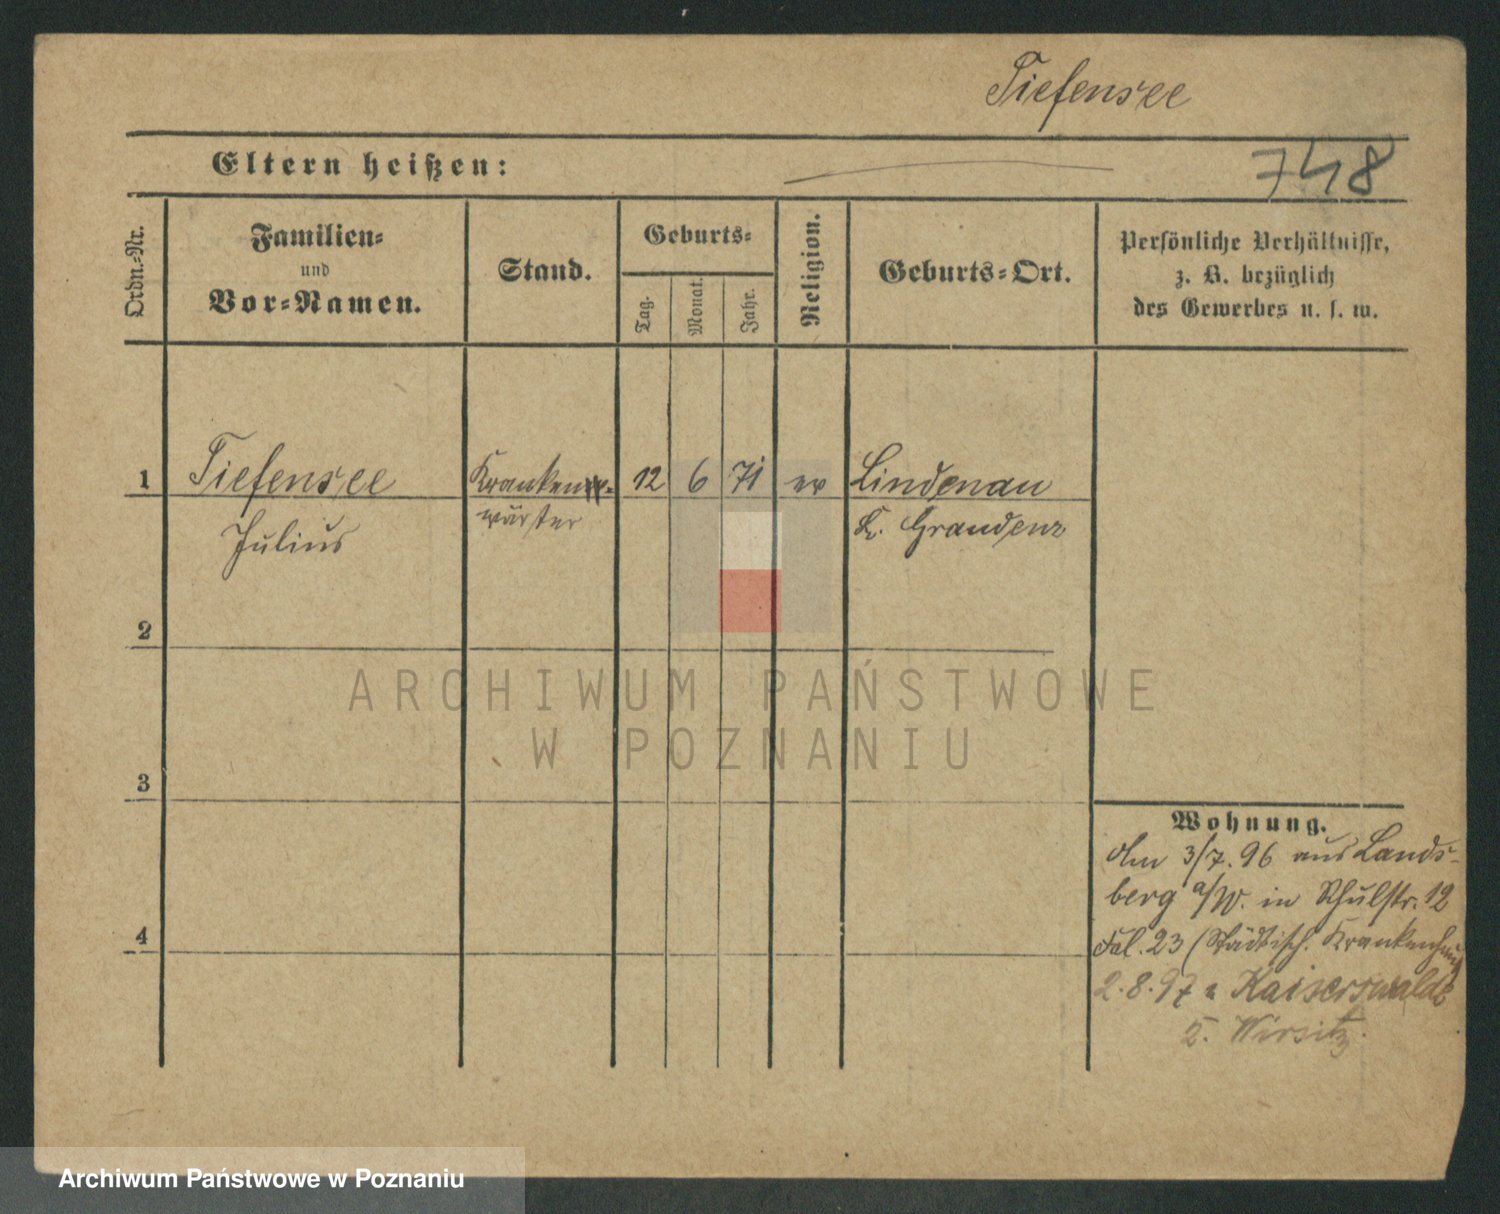 Tiefensee
Eltern heißen:
748
Ordn.-Nr.
Familien=
und
Vor=Namen.
Stand.
Geburts=
Tag.
Monat.
Jahr.
Religion.
Geburts=Ort.
Persönliche Verhältnisse,
z. B. bezüglich
des Gewerbes u. s. w.
1 Tiefensee Kranken- 12 6 71 ev Lindenau
Julius wärter K. Graudenz
2
ARCHIWUM PAŃSTWOWE
W POZNANIU
3
Wohnung.
Am 3/7. 96 aus Lands-
berg a/W. in Schulstr. 12
Fol. 23 (Städtisch. Krankenhaus
4
2.8.97 n Kaiserswalde
K. Wirsitz.
Archiwum Państwowe w Poznaniu